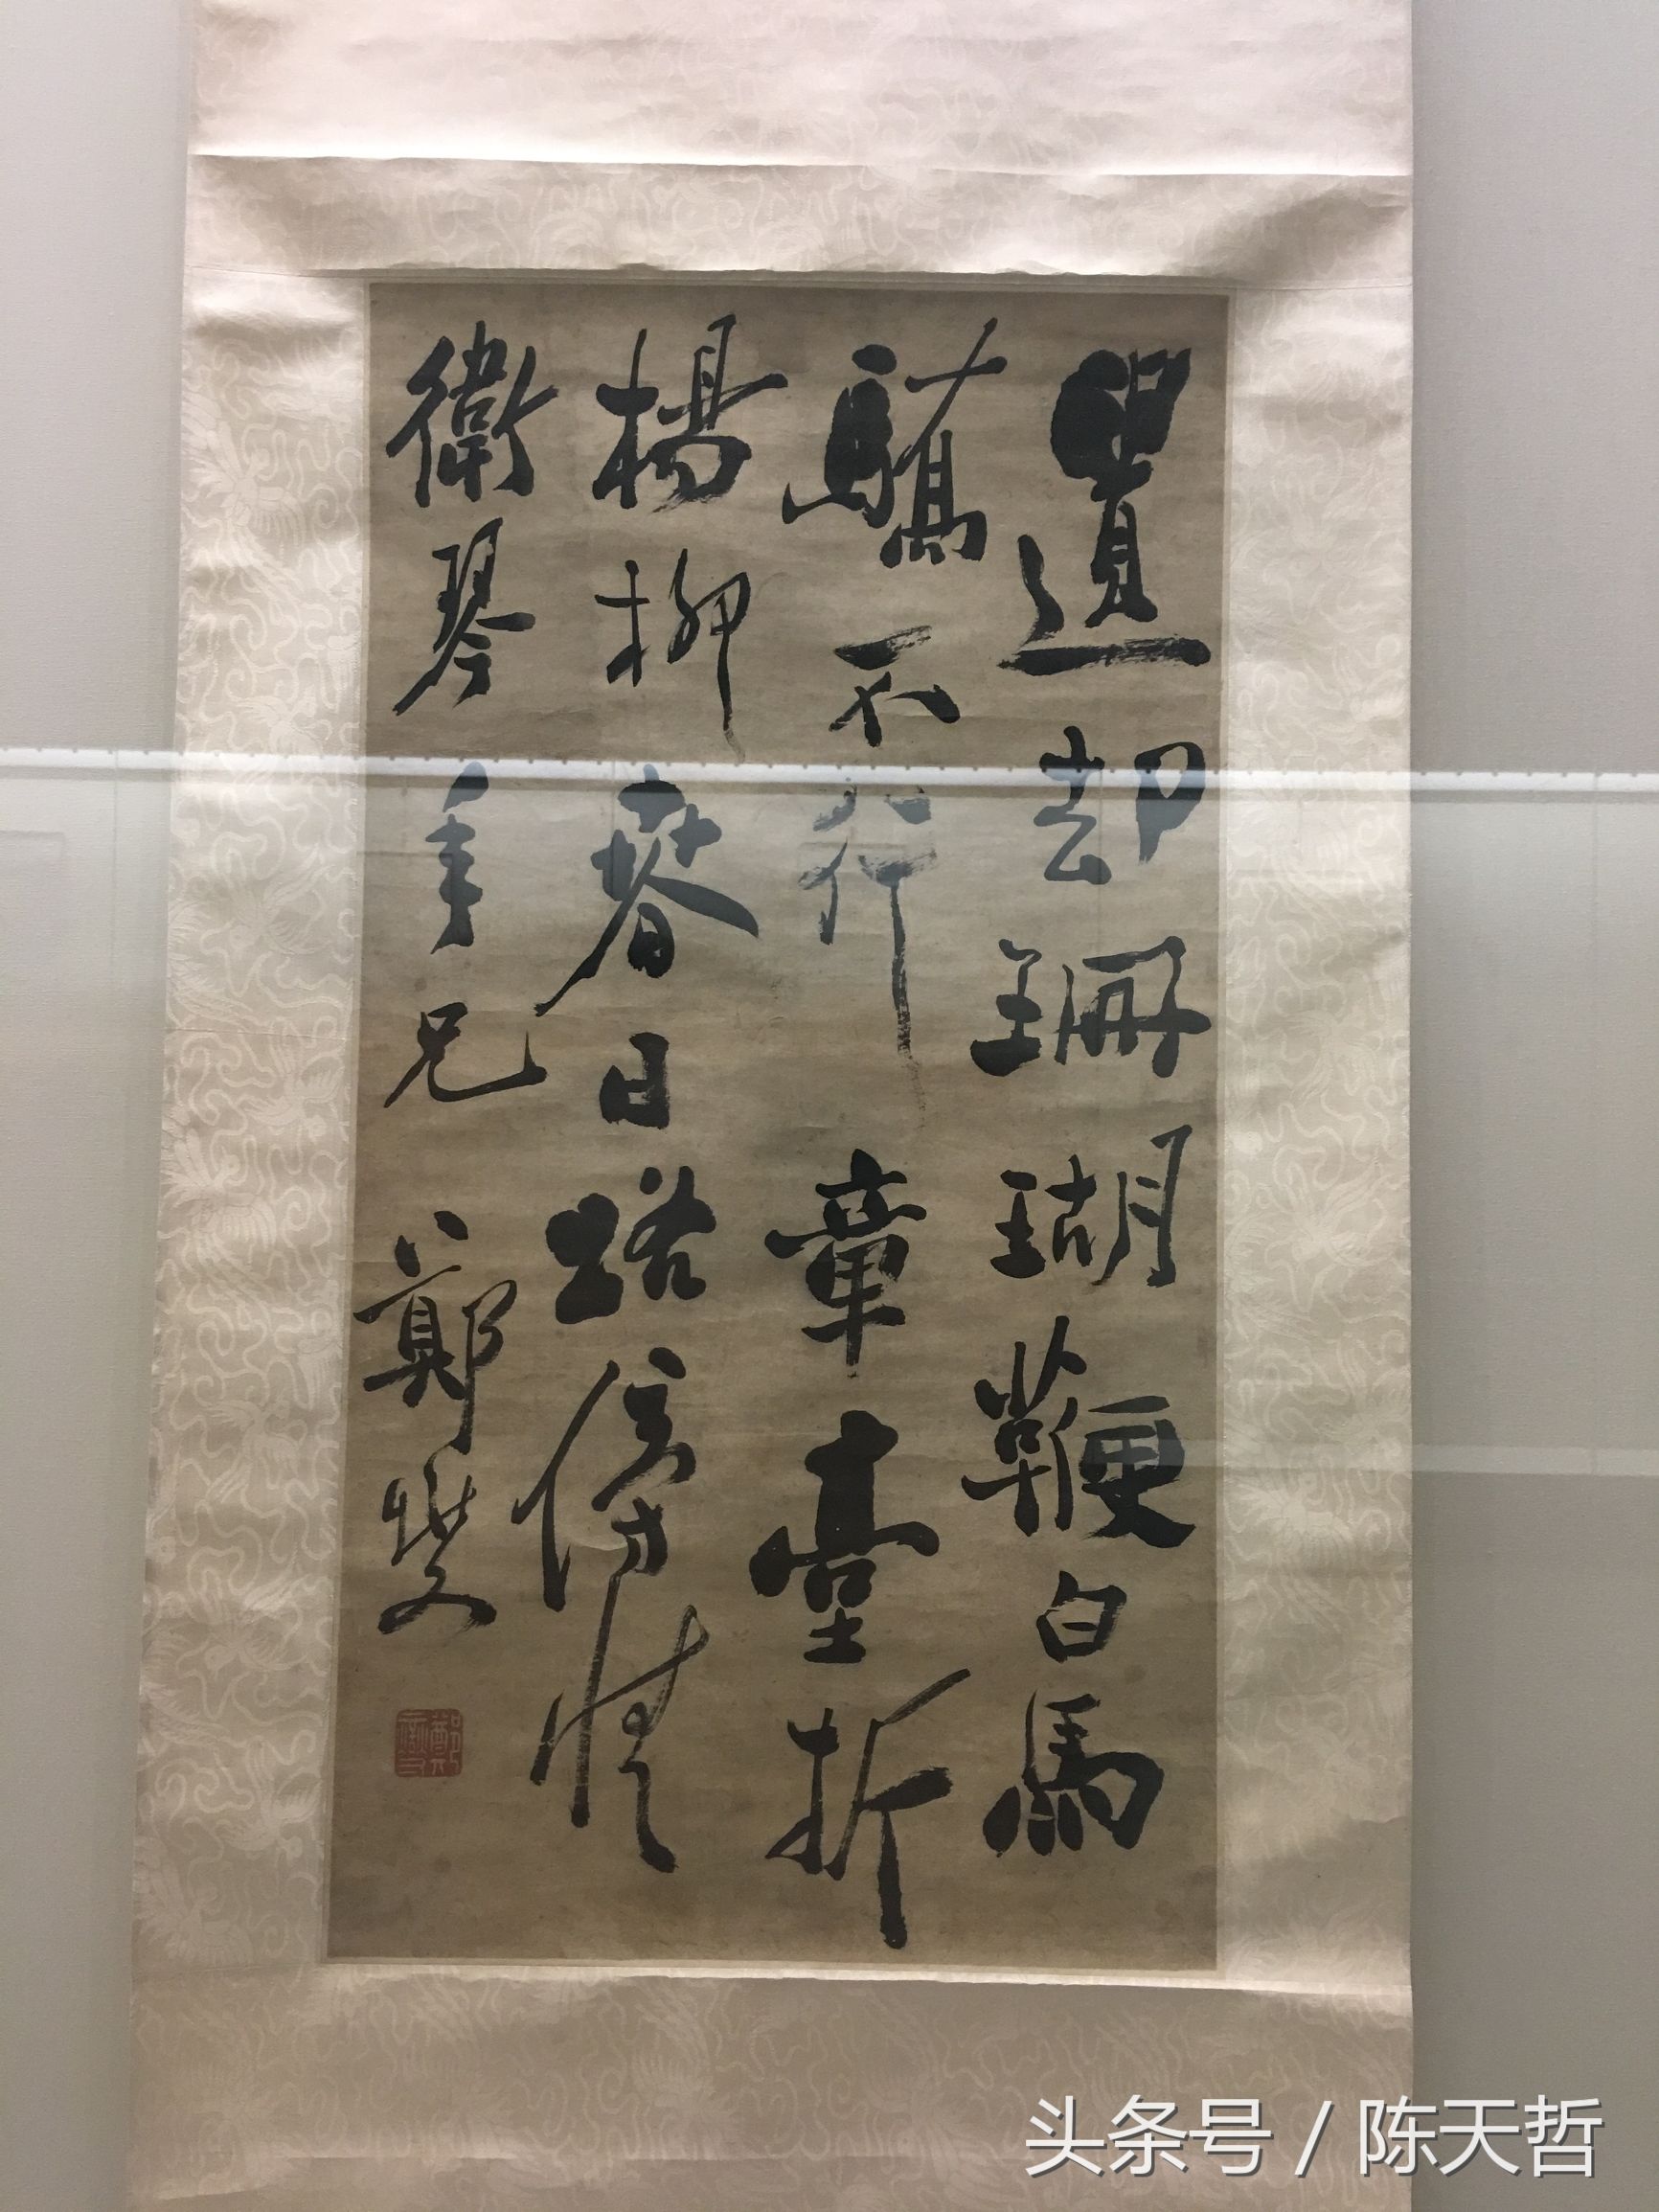 遺却珊瑚鞭白馬
驕不行章臺折
楊柳春日路傍情
衛琴年兄 鄭燮
鄭燮
头条号 / 陈天哲